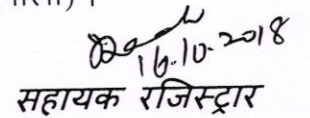 16.10.2018
सहायक रजिस्ट्रार